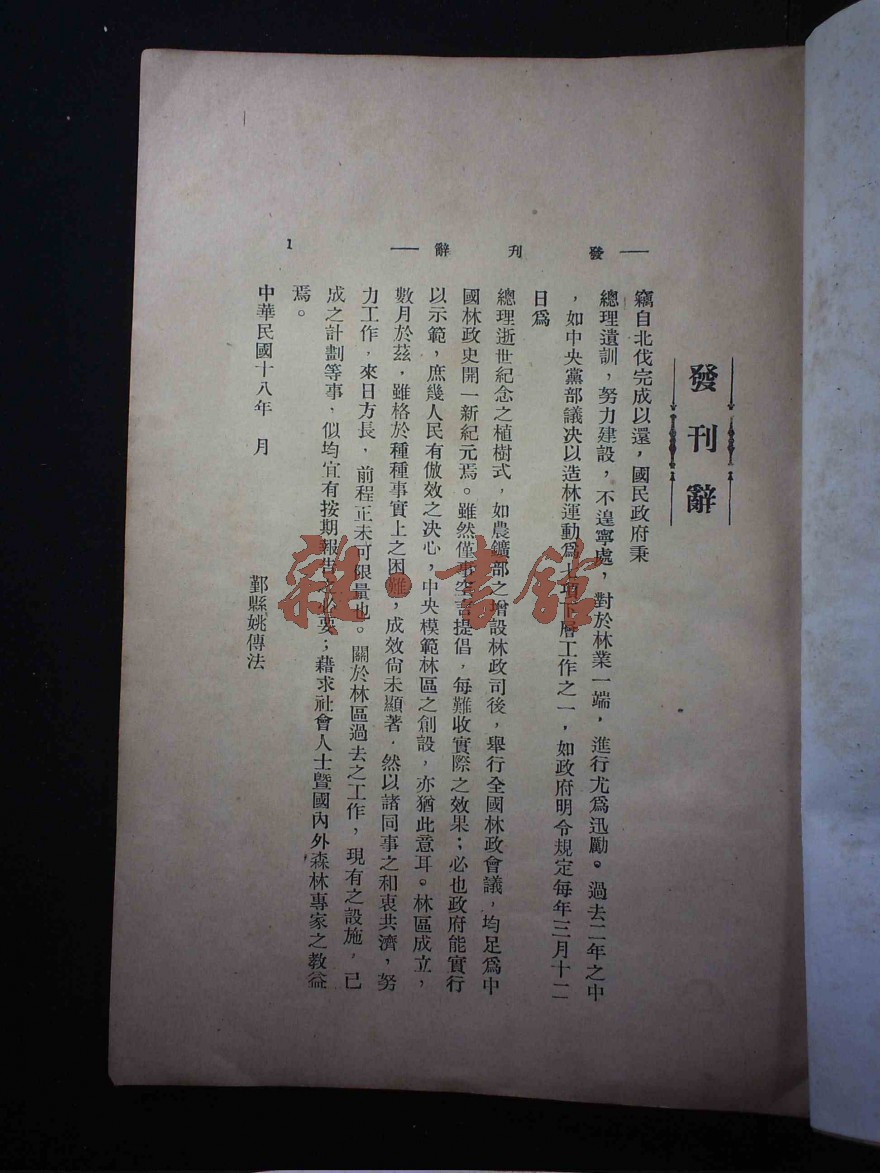 發刊辭
1
發刊辭
竊自北伐完成以還，國民政府秉
總理遺訓，努力建設，不遑寧處，對於林業一端，進行尤爲迅勵。過去二年之中
，如中央黨部議决以造林運動爲七項下層工作之一，如政府明令規定每年三月十二
日爲
總理逝世紀念之植樹式，如農鑛部之增設林政司後，舉行全國林政會議，均足爲中
國林政史開一新紀元焉。雖然僅事空言提倡，每難收實際之效果；必也政府能實行
以示範，庶幾人民有倣效之决心，中央模範林區之創設，亦猶此意耳。林區成立，
數月於茲，雖格於種種事實上之困難，成效尙未顯著．然以諸同事之和衷共濟，努
力工作，來日方長，前程正未可限量也。關於林區過去之工作，現有之設施，已
成之計劃等事，似均宜有按期報告之必要；藉求社會人士曁國內外森林專家之敎益
焉。
中華民國十八年　月
鄞縣姚傳法
雜·書館